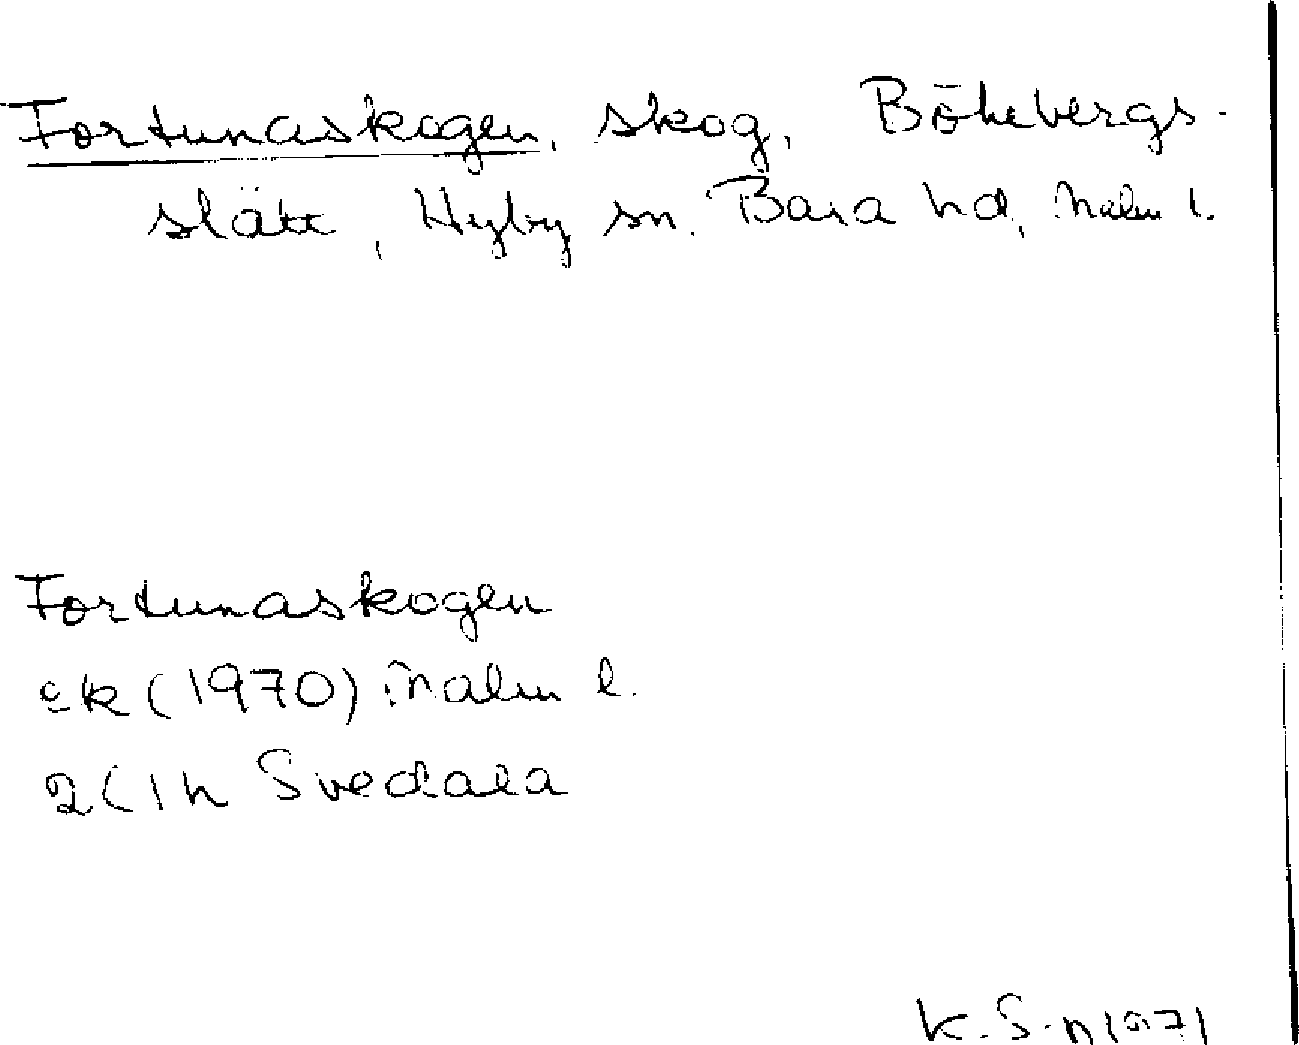 Fortunaskogen, skog, Bökebergs-
slätt, Hyby sn. Bara hd, Malm l.
Fortunaskogen
ek (1970) Malm l.
2C 1h Svedala
K.S-n 1971